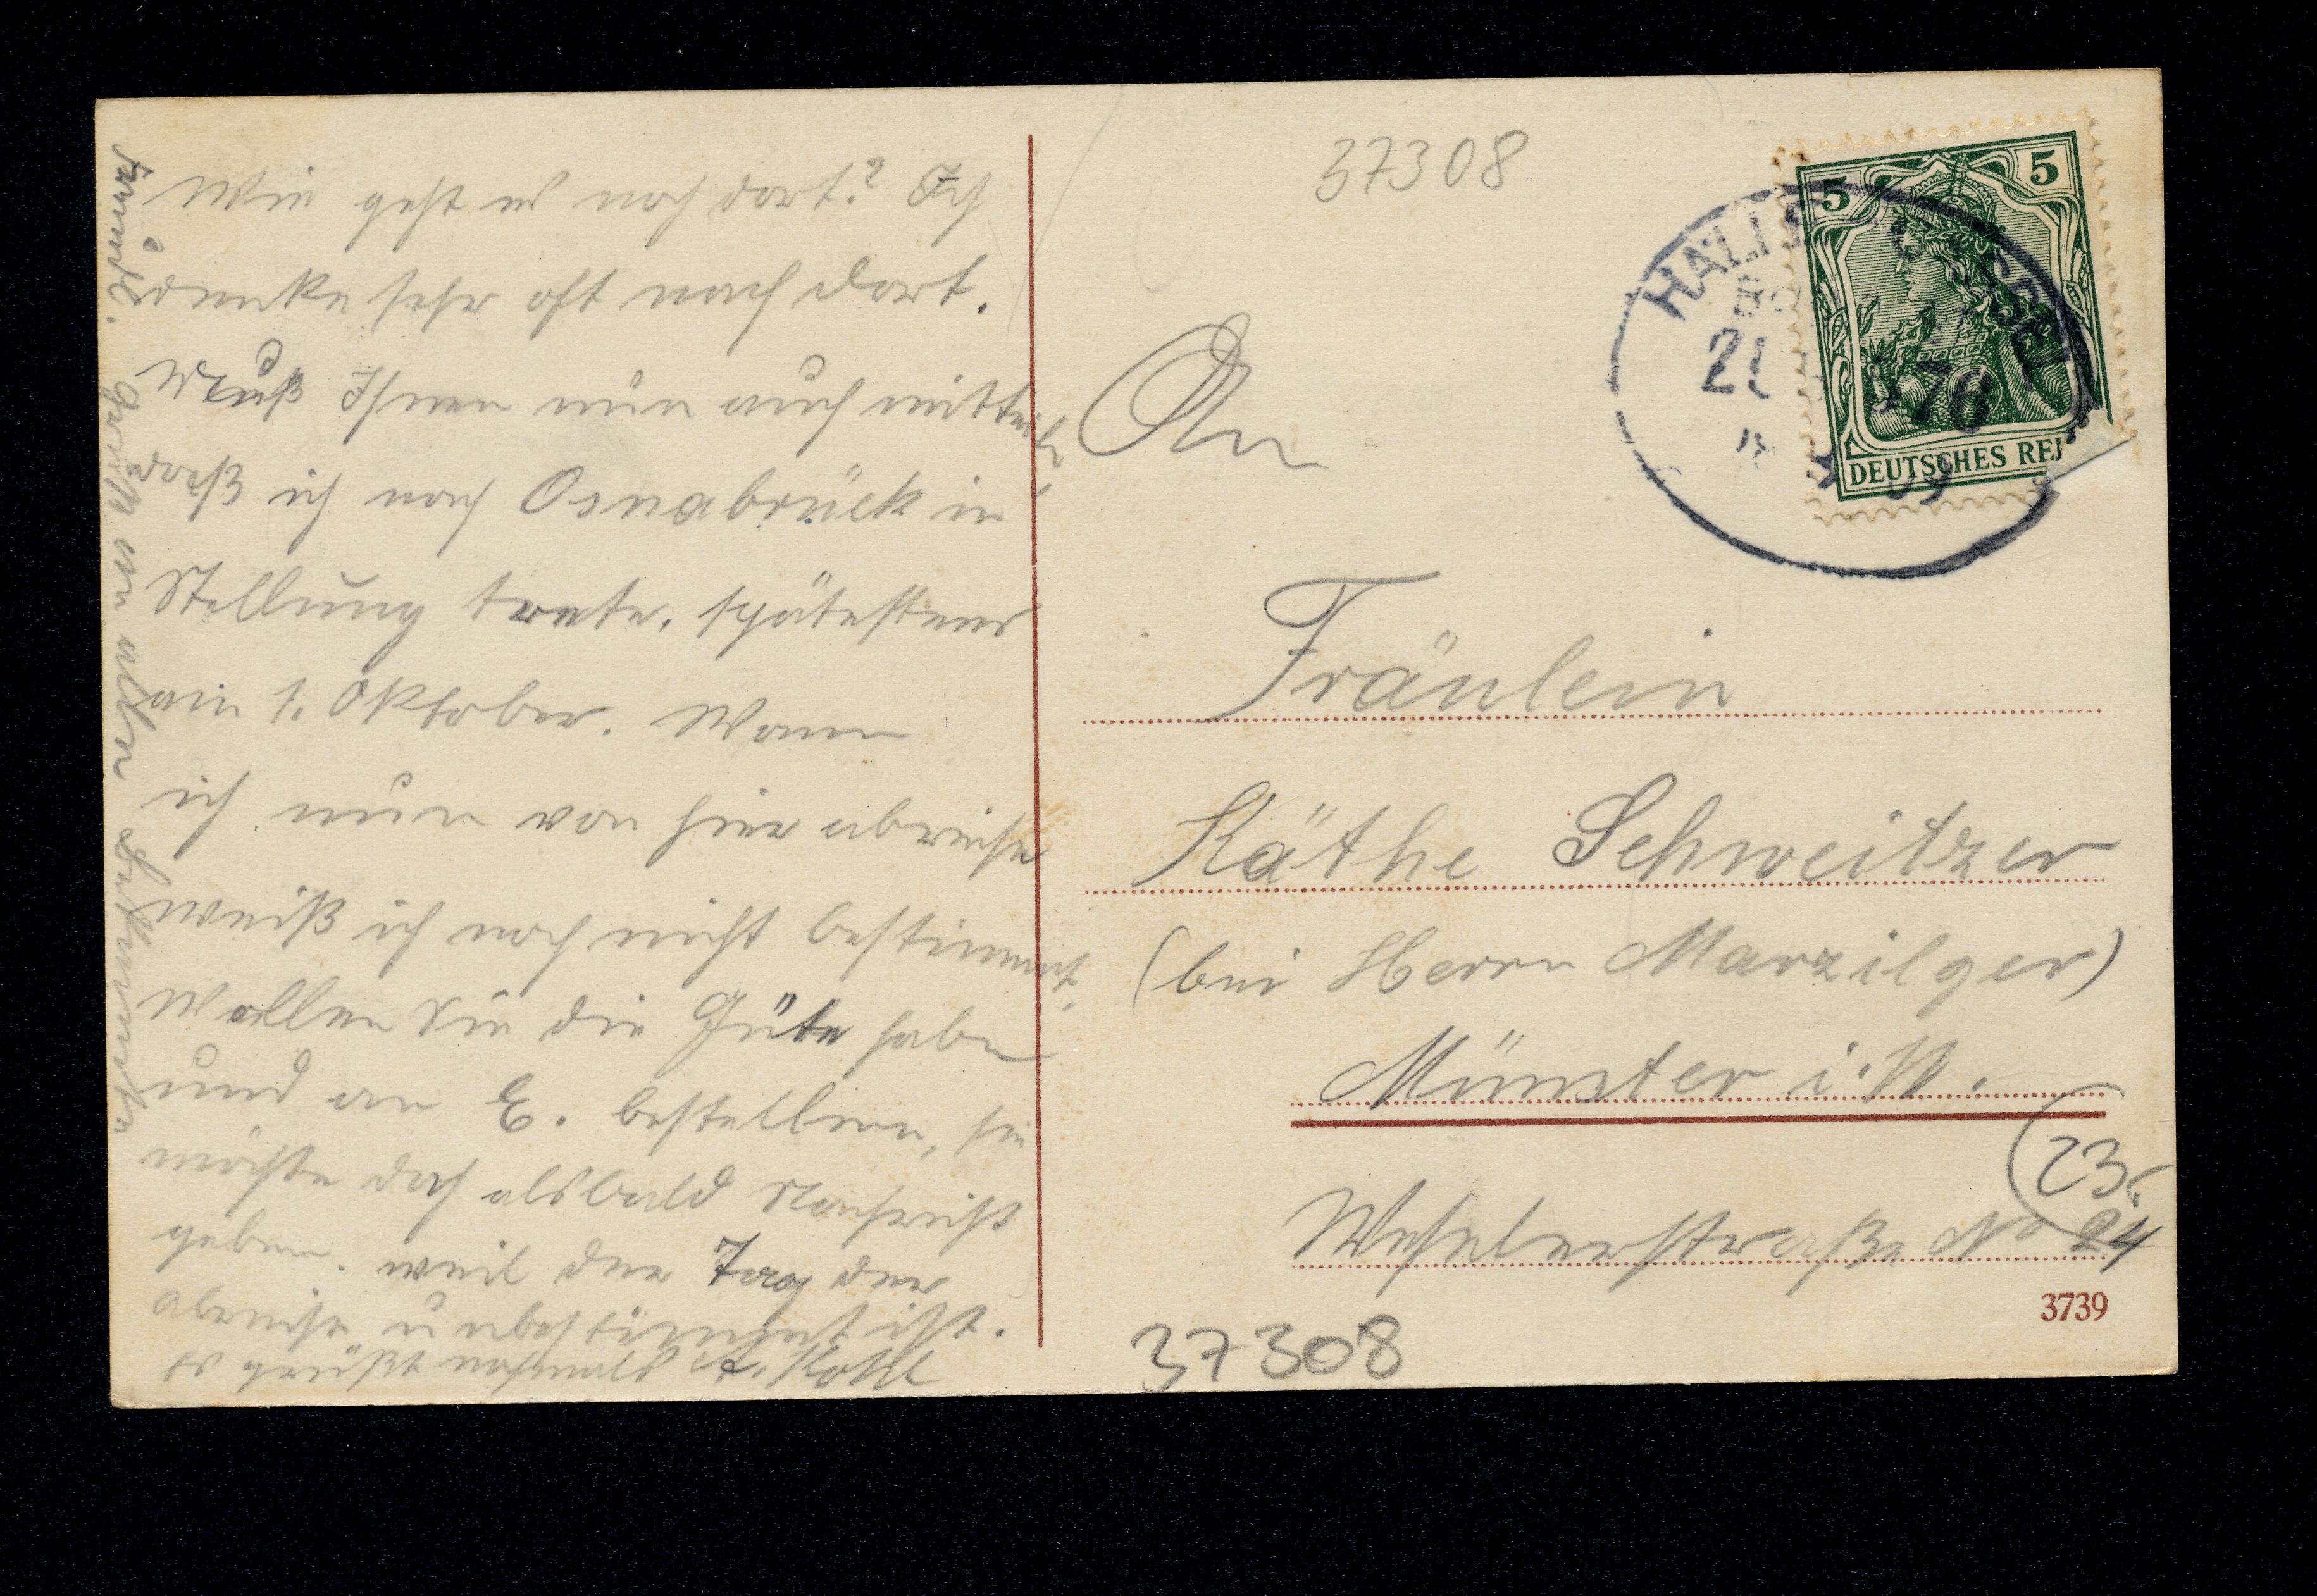 Wie geht es noch dort? Ich
denke sehr oft nach dort.
Muß Ihnen nun auch mitteilen,
daß ich nach Osnabrück in
Stellung trete, spätestens
am 1. Oktober. Wann
ich nun von hier abreise
weiß ich noch nicht bestimmt.
Wollen Sie die Güte haben
und an E. bestellen, sie
möchte doch alsbald Nachricht
geben. weil der Tag der
Abreise unbestimmt ist.
Es grüßt nochmals A. Kohl
Gruß an alle Bekannten
Freunde.
37308
5 5
DEUTSCHES REI
HALLE CASSEL
09
An
Fräulein
Käthe Schweitzer
(bei Herrn Marzilger)
Münster i. W.
23
Weselerstraße No 24
3739
37308